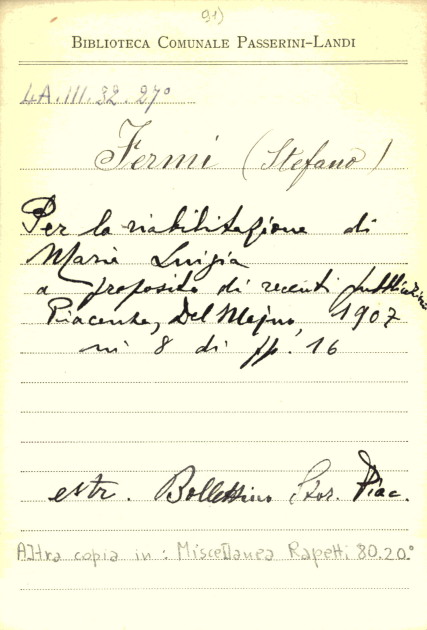 91)
BIBLIOTECA COMUNALE PASSERINI-LANDI
4A.III.32.27º
Fermi (Stefano)
Per la riabilitazione di
Maria Luigia
a proposito di recenti pubblicazioni
Piacenza, Del Majno, 1907
in 8 di pp. 16
estr. Bollettino Stor. Piac.
Altra copia in: Miscellanea Rapetti 80.20º